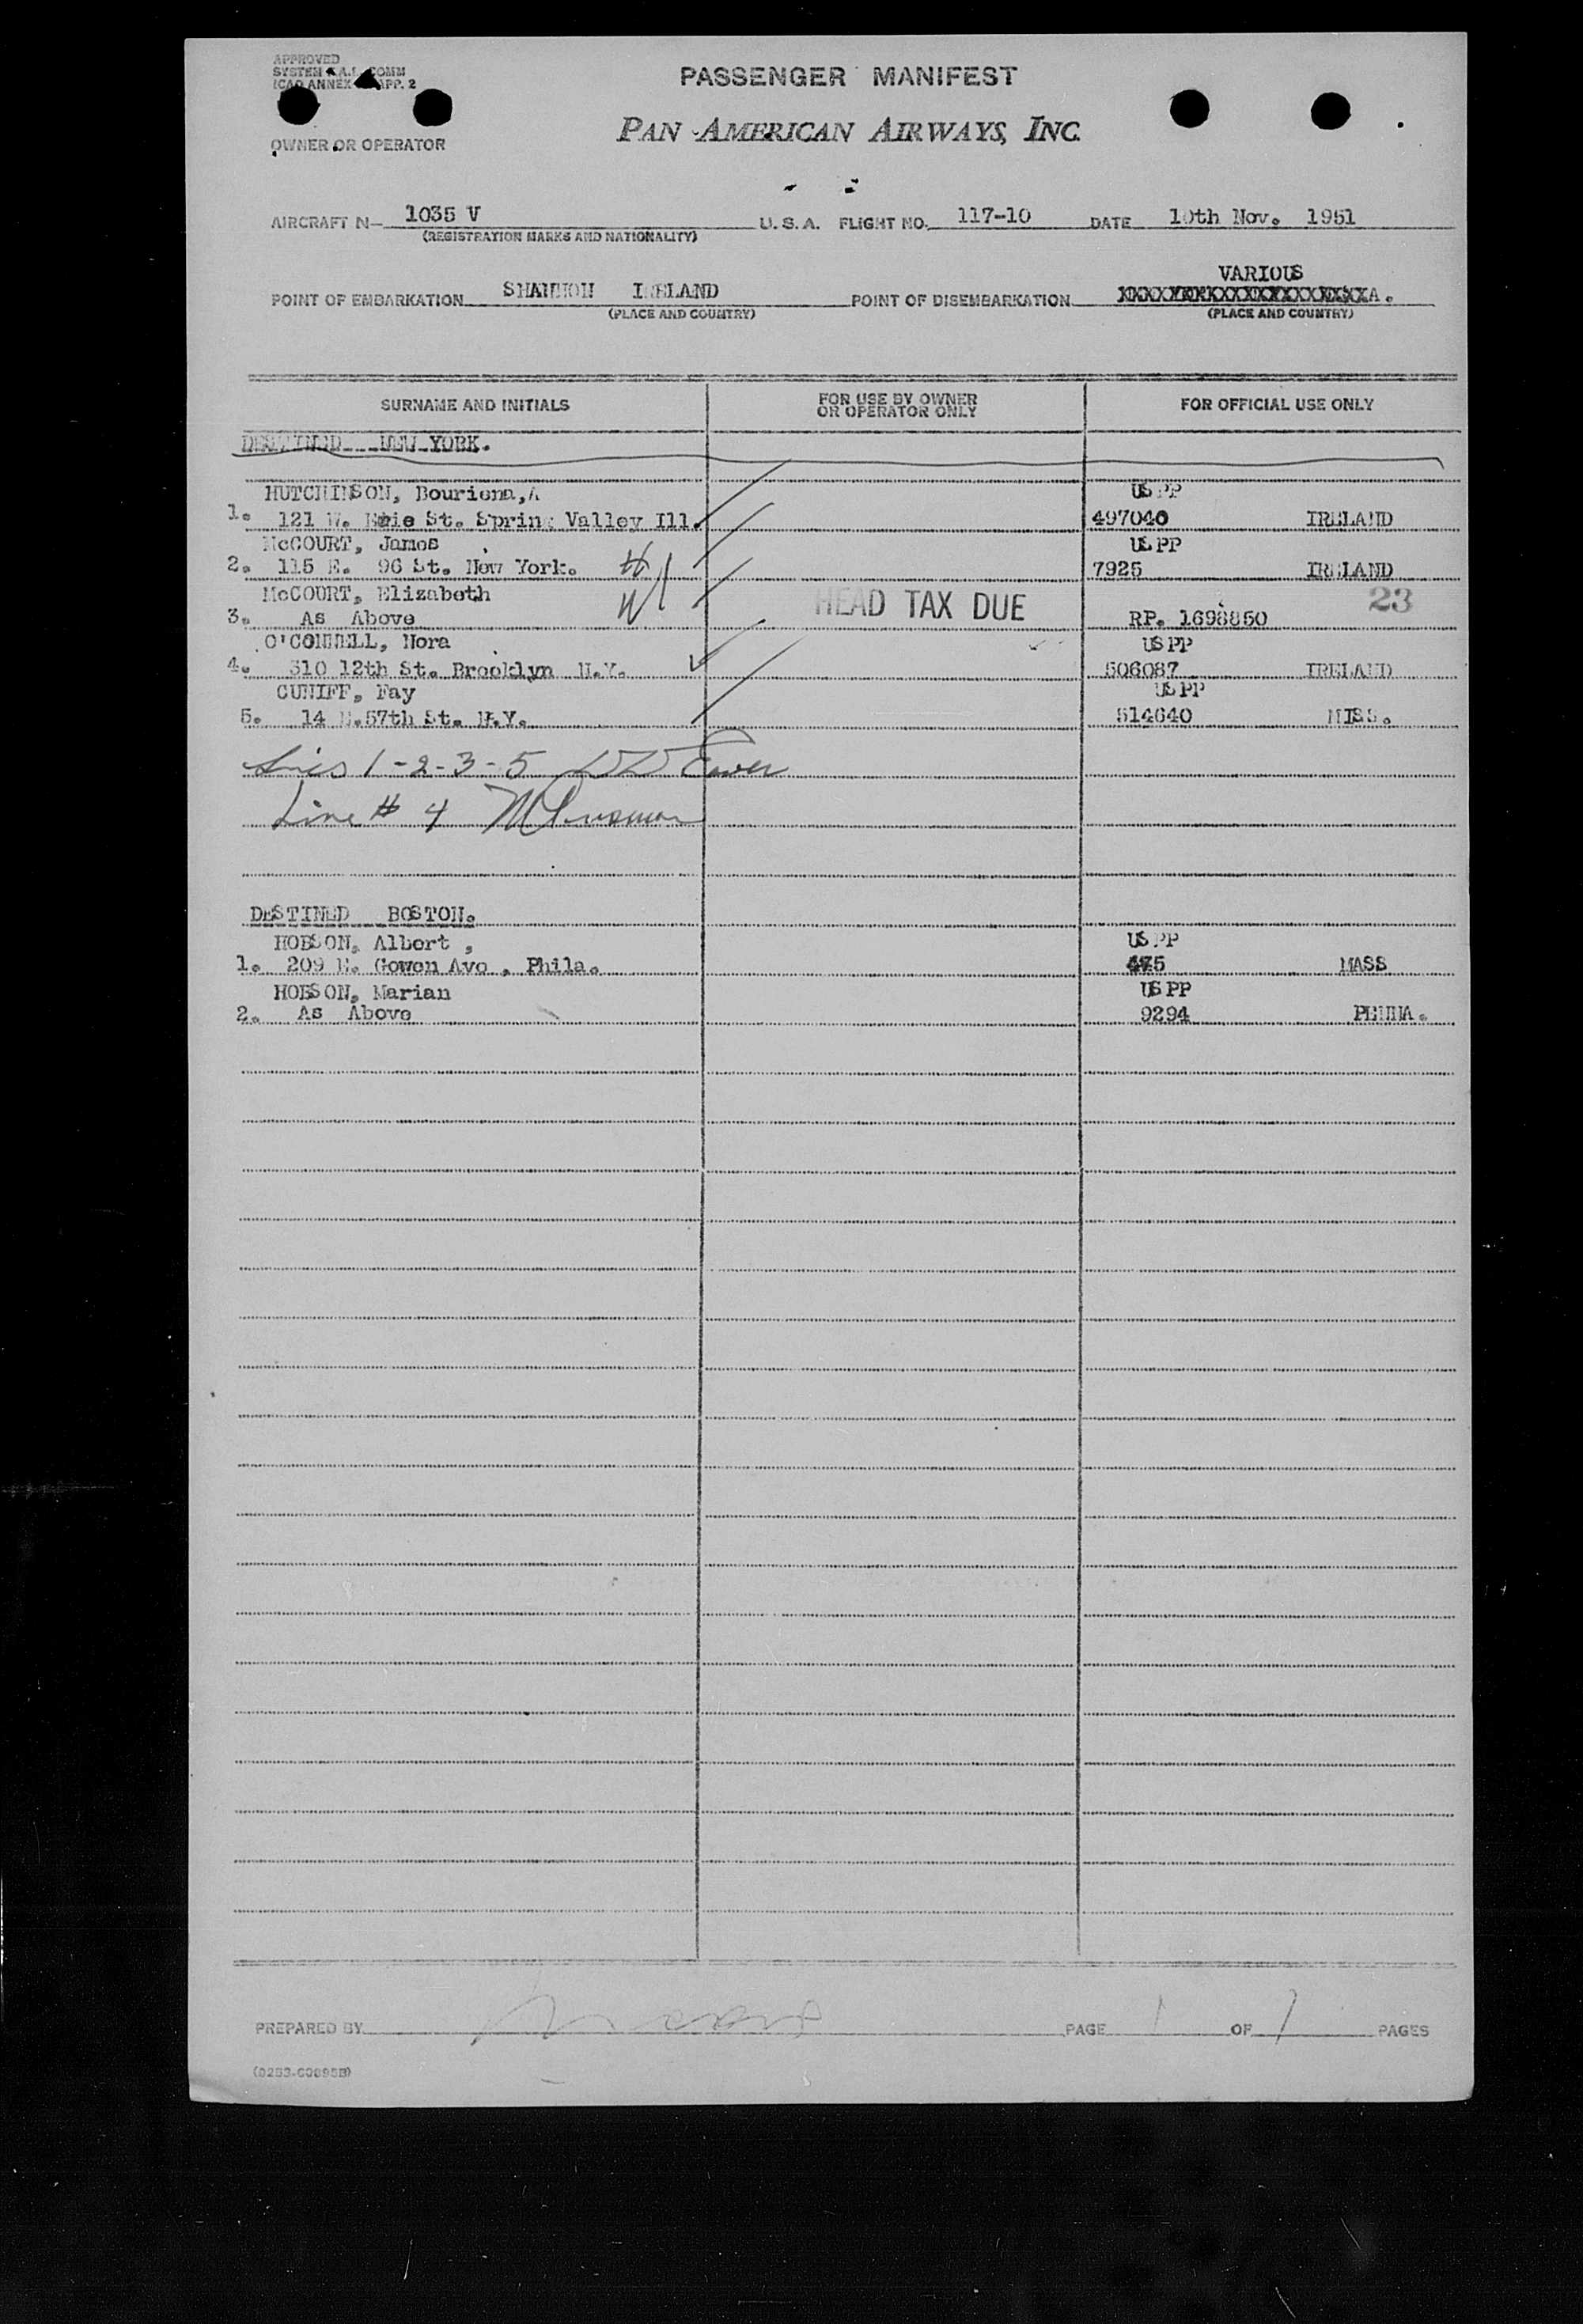 APPROVED
SYSTEM A.I. COMM
ICAO ANNEX APP. 2
PASSENGER MANIFEST
PAN AMERICAN AIRWAYS, INC.
OWNER OR OPERATOR
AIRCRAFT N- 1035 V U.S.A. FLIGHT NO. 117-10 DATE 10th Nov. 1951
(REGISTRATION MARKS AND NATIONALITY)
VARIOUS
POINT OF EMBARKATION SHANNON IRELAND POINT OF DISEMBARKATION A.
(PLACE AND COUNTRY) (PLACE AND COUNTRY)
SURNAME AND INITIALS FOR USE BY OWNER OR OPERATOR ONLY FOR OFFICIAL USE ONLY
DESTINED NEW YORK.
HUTCHINSON, Bouriena, A US PP
1. 121 W. St. Spring Valley Ill. 497040 IRELAND
McCOURT, James US PP
2. 115 E. 96 St. New York. 7925 IRELAND
McCOURT, Elizabeth HEAD TAX DUE 23
3. As Above RP. 1698850
O'CONNELL, Nora US PP
4. 310 12th St. Brooklyn N.Y. 506087 IRELAND
CUNIFF, Fay US PP
5. 14 E.57th St. N.Y. 514640 MISS.
Lines 1-2-3-5
Line # 4
DESTINED BOSTON.
HOBSON, Albert , US PP
1. 209 E. Gowen Ave , Phila. MASS
HOBSON, Marian US PP
2. As Above 9294 PENNA.
PREPARED BY PAGE 1 OF 1 PAGES